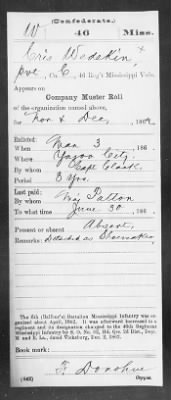 (Confederate.)
W 46 Miss.
Cris Wedekin
Pvt., Co. C, 46 Reg't Mississippi Vols.
Appears on
Company Muster Roll
of the organization named above,
for Nov & Dec, 186
Enlisted:
When Mar 3, 186
Where Yazoo City,
By whom Capt Clark.
Period 3 Yrs.
Last paid:
By whom Maj Patton
To what time June 30, 186
Present or absent Absent,
Remarks: Detached as
The 6th (Balfour's) Battalion Mississippi Infantry was organized about April, 1862. It was afterward increased to a regiment and its designation changed to the 46th Regiment Mississippi Infantry by S. O. No.
Dept. M. and E. La., dated Vicksburg, Dec. 2, 1862.
Book mark:
F. Donohue
(642) Copyist.